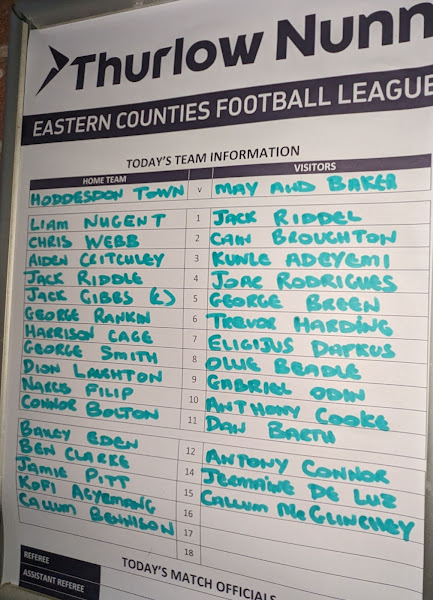 Thurlow Nunn
EASTERN COUNTIES FOOTBALL LEAGUE
TODAY'S TEAM INFORMATION
HOME TEAM VISITORS
HODDESDON TOWN v MAY AND BAKER
LIAM NUGENT 1 JACK RIDDEL
CHRIS WEBB 2 CAIN BROUGHTON
AIDEN CRITCHLEY 3 KUNLE ADEYEMI
JACK RIDDLE 4 JOAC RODRIGUES
JACK GIBBS (C) 5 GEORGE BREEN
GEORGE RANKIN 6 TREVOR HARDING
HARRISON CAGE 7 ELIGIJUS DAPKUS
GEORGE SMITH 8 OLLIE BEADLE
DION LAUGHTON 9 GABRIEL ODIN
NARCIS FILIP 10 ANTHONY COOKE
CONNOR BOLTON 11 DAN BARTH
BAILEY EDEN 12 ANTONY CONNOR
BEN CLARKE 14 JERMAINE DE LUZ
JAMIE PITT 15 CALLUM McGLINCHEY
KOFI AGYEMANG 16
CALLUM BENNISON 17
18
TODAY'S MATCH OFFICIALS
REFEREE
ASSISTANT REFEREE